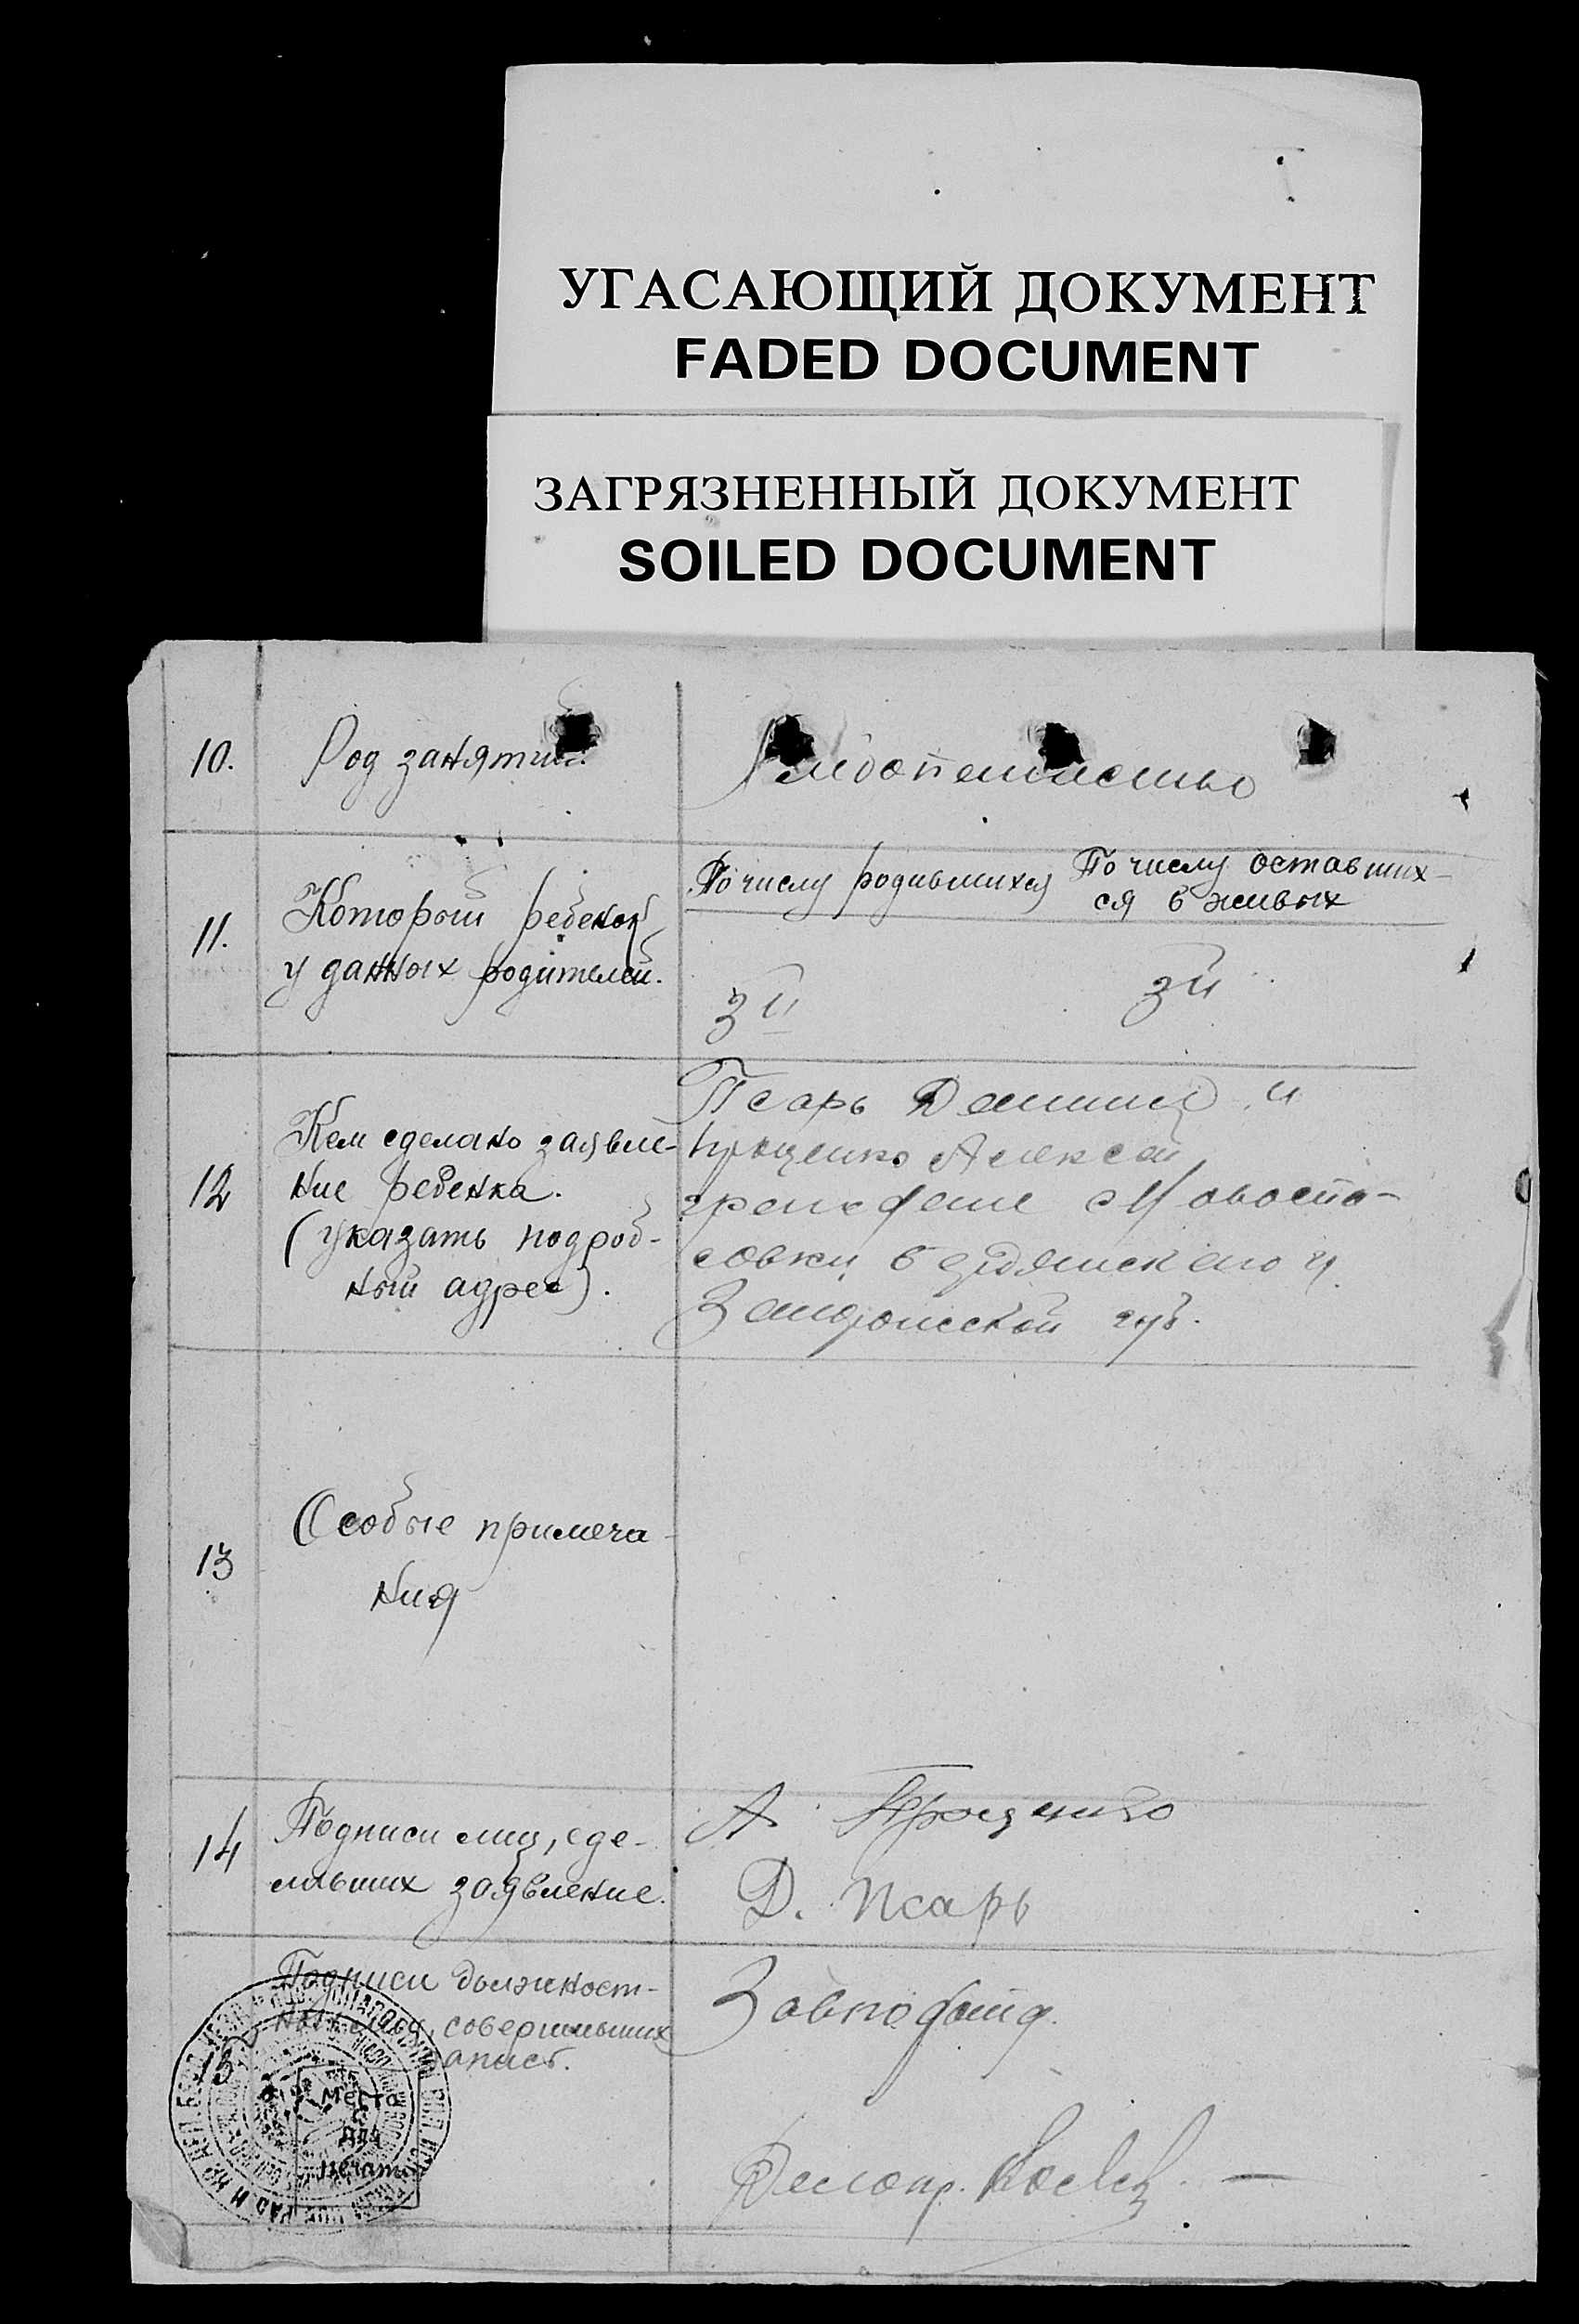 УГАСАЮЩИЙ ДОКУМЕНТ
FADED DOCUMENT
ЗАГРЯЗНЕННЫЙ ДОКУМЕНТ
SOILED DOCUMENT
10. Род занятий.
11. Который ребенок
у данных родителей.
По числу родившихся
По числу оставших-
ся в живых
3й
3й
12 Кем сделано заявле-
ние ребенка.
(указать подроб-
ный адрес).
Псарь Даниил и
Проценко Алексей
граждане Новоспа-
совки Бердянского у.
Запорожской губ.
13 Особые примеча-
ния
14 Подписи лиц, сде-
лавших заявление.
А Проценко
Д. Псарь
15 Подписи должност-
совершивших
Место
для
печати
Делопр.